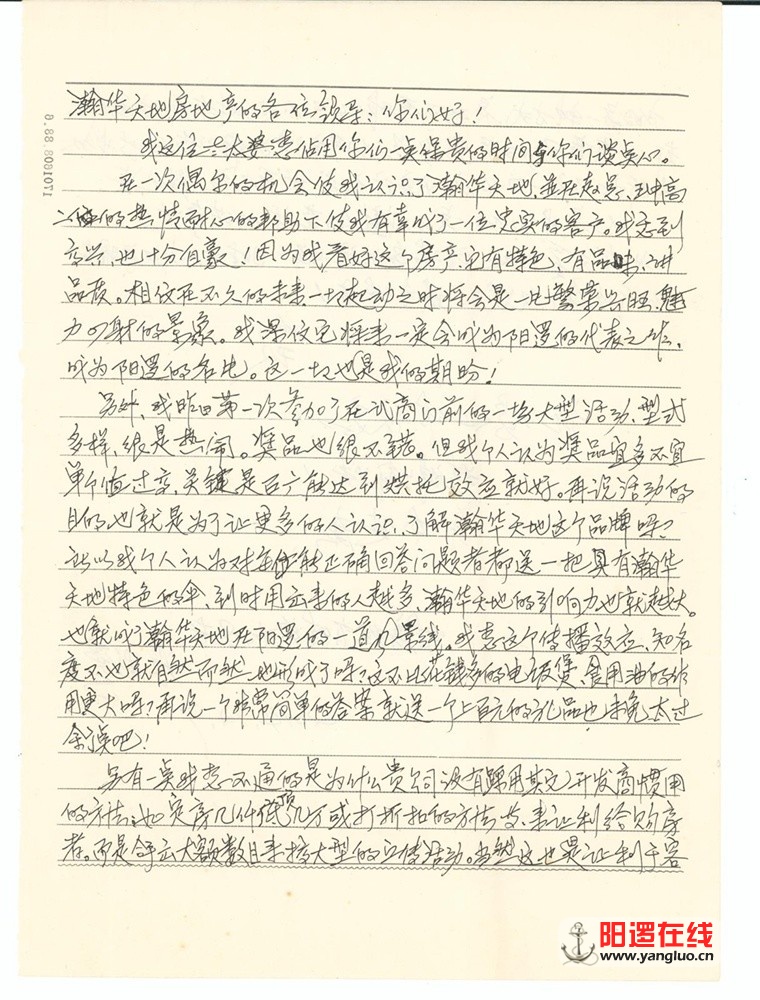 瀚华天地房地产的各位领导:你们好!
我这位老太婆想佔用你们一点保贵的时间与你们谈点心。
在一次偶尔的机会使我认识了瀚华天地,並在赵总、王中高
二位的热情耐心的帮助下使我有幸成了一位忠实的客户。我感到
高兴,也十分自豪!因为我看好这个房产,它有特色,有品味,讲
品质。相信在不久的未来一切起动之时将会是一片繁荣兴旺、魅
力四射的景象。我深信它将来一定会成为阳逻的代表之作,
成为阳逻的名片。这一切也是我的期盼!
另外,我昨日第一次参加了在武商门前的一场大型活动,型式
多样,很是热闹。奖品也很不错。但我个人认为奖品宜多不宜
单个值过高,关键是否能达到烘托效应就好。再说活动的
目的,也就是为了让更多的人认识、了解瀚华天地这个品牌吗?
所以我个人认为对 能正确回答问题者都送一把具有瀚华
天地特色的伞,到时用出来的人越多,瀚华天地的引响力也就越大。
也就成了瀚华天地在阳逻的一道风景线。我想这个传播效应、知名
度不也就自然而然地形成了吗?这不比花钱多的电饭煲、食用油的作
用更大吗?再说一个非常简单的答案就送一个上百元的礼品也未免太过
余了点吧!
另有一点我想不通的是为什么贵公司没有踩用其它开发商惯用
的方法:如定房几仟抵顶几万或打折扣的方法等,来让利给购房
者。而是拿出大额数目来搞大型的宣传活动。当然这也是让利于客
8.88.8081071
阳逻在线
www.yangluo.cn